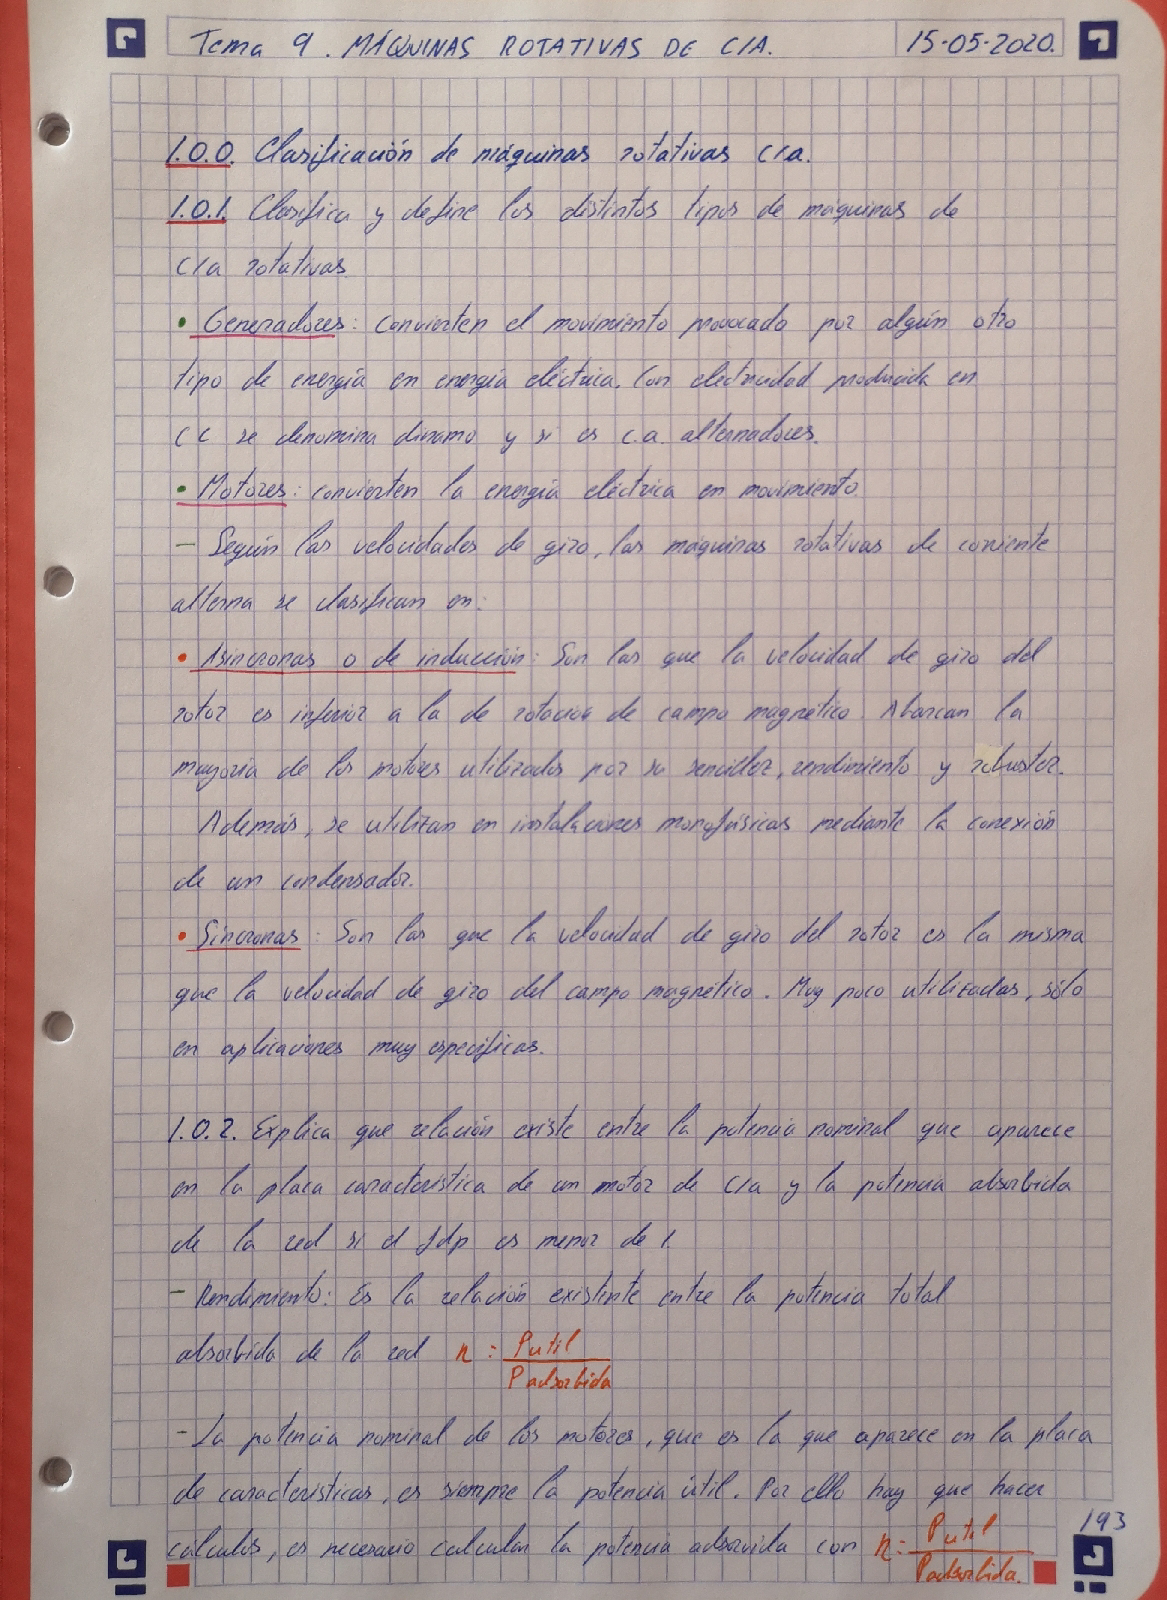 Tema 9. MÁQUINAS ROTATIVAS DE C/A. 15-05-2020.
1.0.0. Clasificación de máquinas rotativas c/a.
1.0.1. Clasifica y define los distintos tipos de máquinas de
c/a rotativas.
• Generadores: convierten el movimiento provocado por algún otro
tipo de energía en energía eléctrica. Con electricidad producida en
CC se denomina dinamo y si es c.a. alternadores.
• Motores: convierten la energía eléctrica en movimiento.
- Según las velocidades de giro, las máquinas rotativas de corriente
alterna se clasifican en:
• Asíncronas o de inducción: Son las que la velocidad de giro del
rotor es inferior a la de rotación de campo magnético. Abarcan la
mayoría de los motores utilizados por su sencillez, rendimiento y robustez.
Además, se utilizan en instalaciones monofásicas mediante la conexión
de un condensador.
• Síncronas: Son las que la velocidad de giro del rotor es la misma
que la velocidad de giro del campo magnético. Muy poco utilizadas, sólo
en aplicaciones muy específicas.
1.0.2. Explica que relación existe entre la potencia nominal que aparece
en la placa característica de un motor de c/a y la potencia absorbida
de la red si el fdp es menor de 1.
- Rendimiento: Es la relación existente entre la potencia total
absorbida de la red n = Putil / Padsorbida
- La potencia nominal de los motores, que es la que aparece en la placa
de características, es siempre la potencia útil. Por ello hay que hacer
cálculos, es necesario calcular la potencia adsorvida con n = Putil / Padsorbida.
193